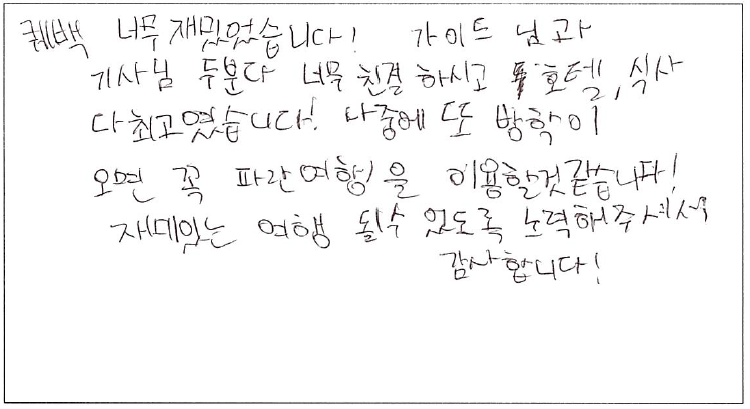 퀘백 너무 재밌었습니다! 가이드 님과
기사님 두분다 너무 친절하시고 호텔, 식사
다 최고였습니다! 나중에 또 방학이
오면 꼭 파란여행을 이용할것 같습니다!
재미있는 여행 될수 있도록 노력해주셔서
감사합니다!